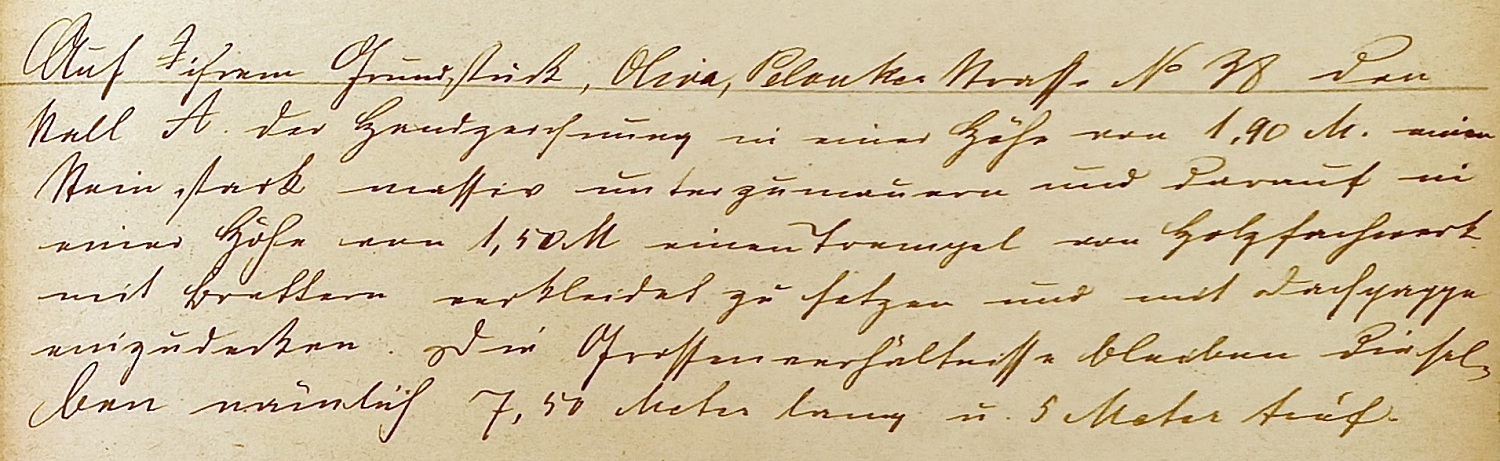 Auf Ihrem Grundstück, Oliva, Pelonker Strasse No 38 den
Stall A. der Handzeichnung in einer Höhe von 1,90 M. einen
Stein stark massiv unterzumauern und darauf in
einer Höhe von 1,50 M einen Trempel von Holzfachwerk
mit Brettern verkleidet zu setzen und mit Dachpappe
einzudecken. Die Grossenverhältnisse bleiben diesel-
ben nämlich 7,50 Meter lang u. 5 Meter tief.